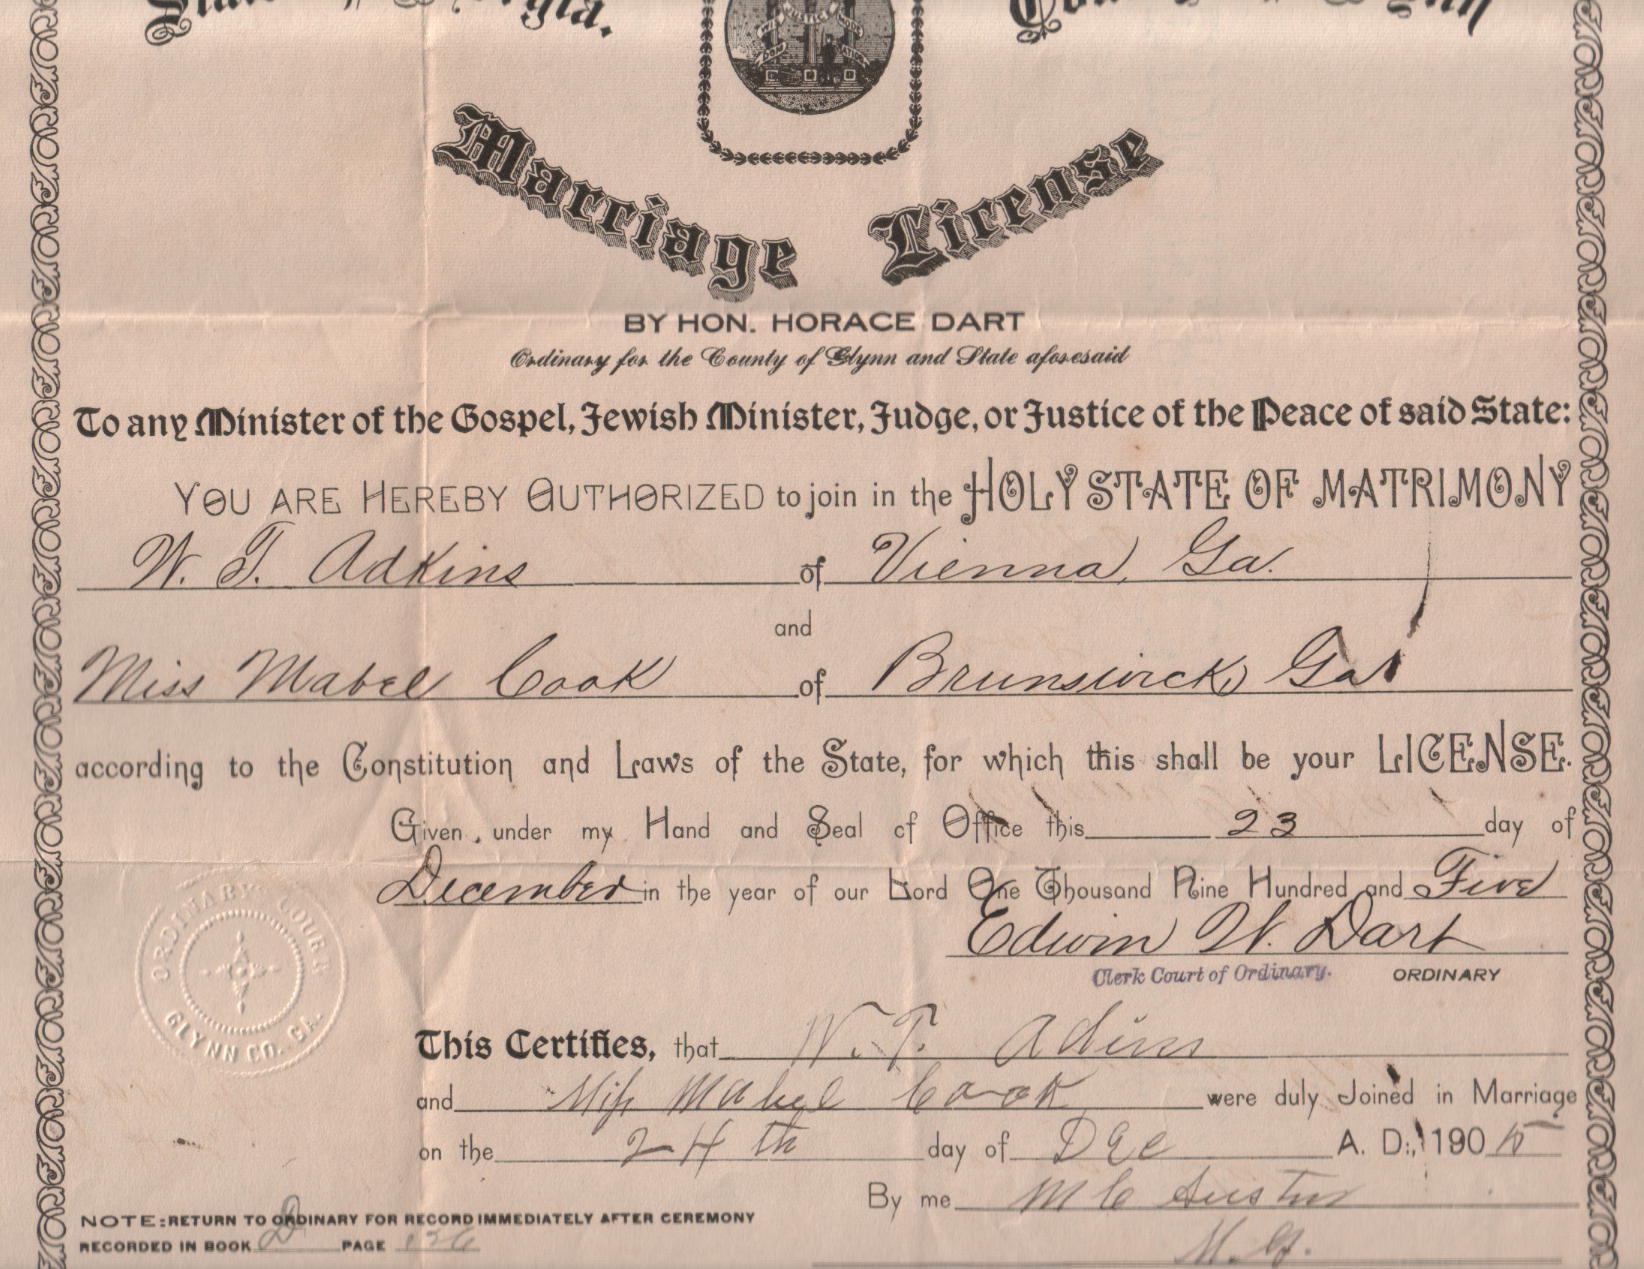 State of Georgia. County of Glynn
JUSTICE
Marriage License
BY HON. HORACE DART
Ordinary for the County of Glynn and State aforesaid
To any Minister of the Gospel, Jewish Minister, Judge, or Justice of the Peace of said State:
YOU ARE HEREBY AUTHORIZED to join in the HOLY STATE OF MATRIMONY
W. T. Adkins of Vienna, Ga.
and
Miss Mabel Cook of Brunswick, Ga
according to the Constitution and Laws of the State, for which this shall be your LICENSE.
Given under my Hand and Seal of Office this 23 day of
December in the year of our Lord One Thousand Nine Hundred and Five
Edwin W. Dart
Clerk Court of Ordinary. ORDINARY
ORDINARY COURT
GLYNN CO. GA.
This Certifies, that W. T. Adins
and Miss Mabel Cook were duly Joined in Marriage
on the 24th day of Dec A. D., 1905
By me M C Austin
M. G.
NOTE: RETURN TO ORDINARY FOR RECORD IMMEDIATELY AFTER CEREMONY
RECORDED IN BOOK D PAGE